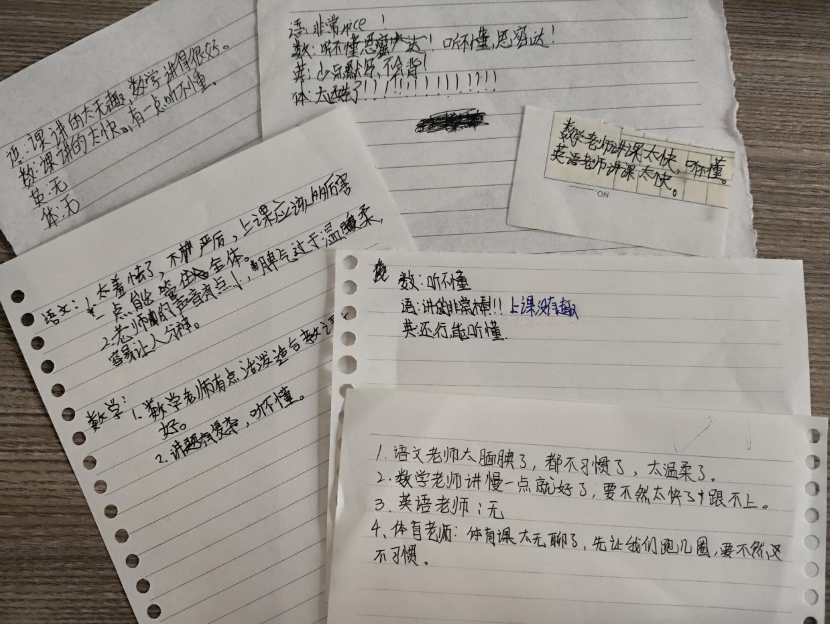 语:课讲的太无趣,数学讲得很好。
数:课讲的太快。有一点听不懂。
英:无
体:无
语:非常nice!
数:听不懂思密达!听不懂,思密达!
英:少点默写,不会背!
体:太酷了!!!!!!!!!!!!!
数学老师讲课太快,听不懂。
英语老师讲课太快。
ON
语文:1.太羞怯了,不严厉,上课应该厉害
一点能管住全体。
2.老师的声音有点小,脾气过于温柔,
容易让人分神。
数学:1.数学老师有点活泼适合教
好。
2.讲题有复杂,听不懂。
数:听不懂
语:讲的非常棒!!上课没有趣
英:还行,能听懂.
1.语文老师太腼腆了,都不习惯了,太温柔了。
2.数学老师讲慢一点就好了,要不然太快了跟不上。
3.英语老师:无
4.体育老师:体育课太无聊了,先让我们跑几圈,要不然
不习惯。